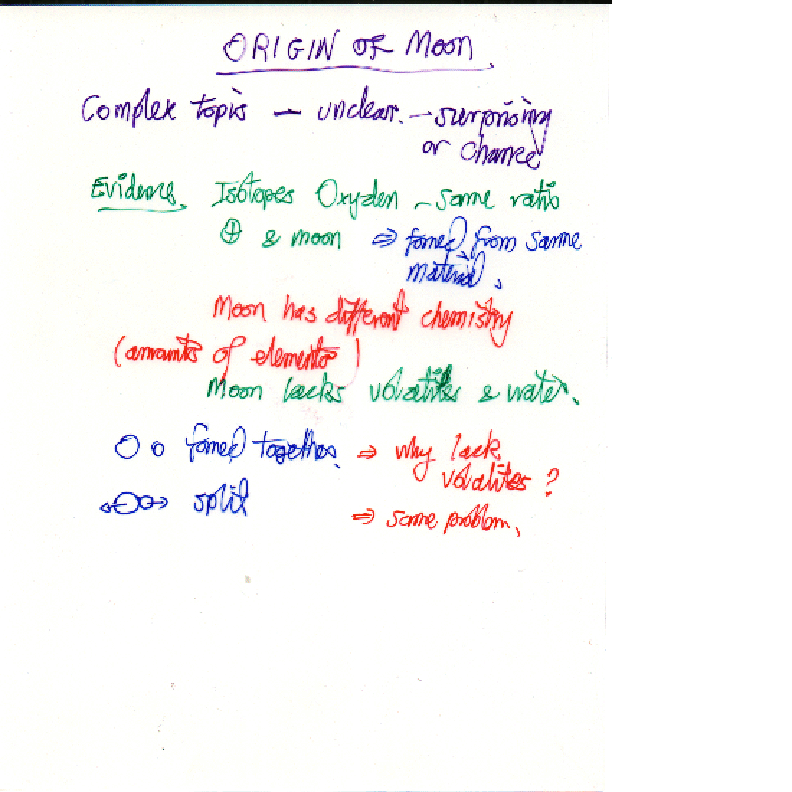 ORIGIN OF MOON
Complex topic — unclear. — surprising
or chance
Evidence. Isotopes Oxyden – same ratio
⊕ & moon ⇒ formed from same
material.
Moon has different chemistry
(amounts of elements)
Moon lacks volatiles & water.
formed together. ⇒ why lack
volatiles ?
split
⇒ same problem.